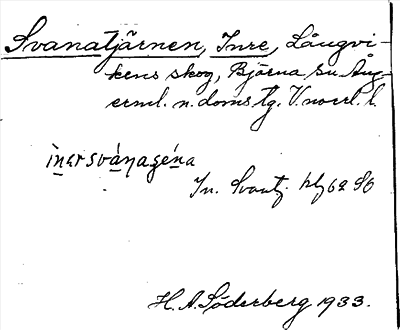 Svanatjärnen, Inre, Långvi-
kens skog, Björna sn. Ång-
erml. n. doms tg. V.norrl. l.
In. Svantj. blg 62 S6
H. A. Söderberg 1933.